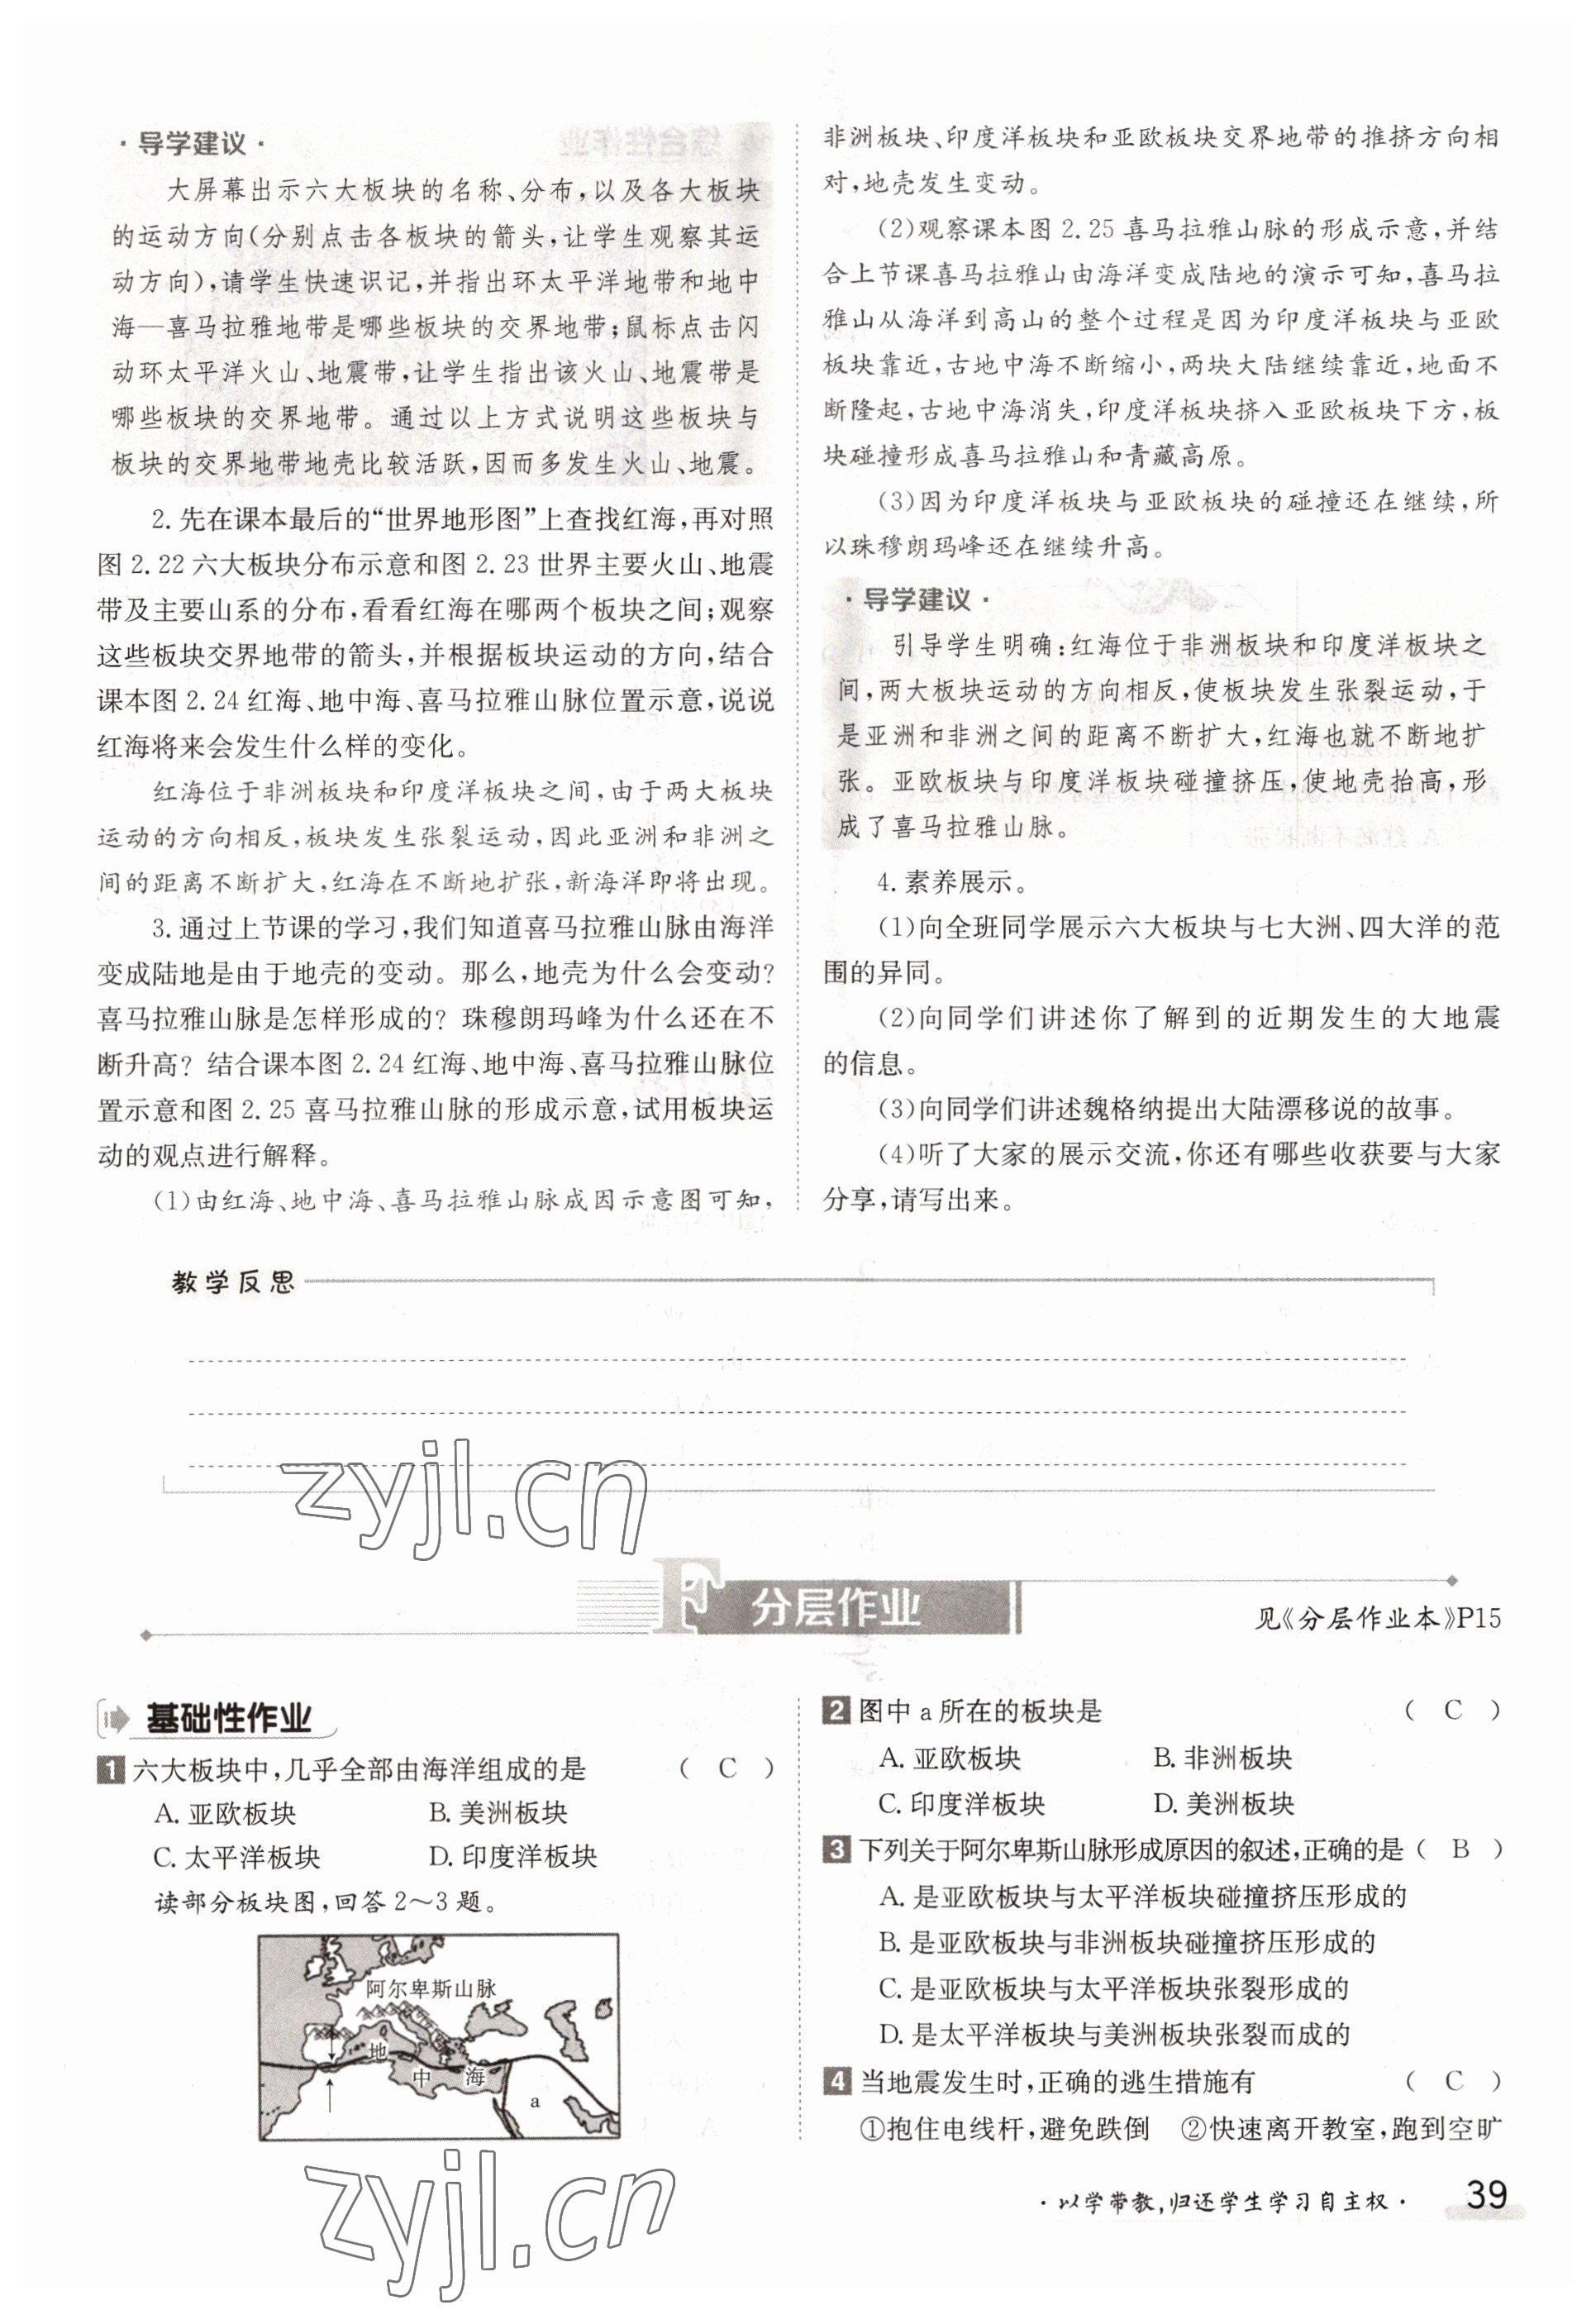 · 导学建议 ·
大屏幕出示六大板块的名称、分布,以及各大板块
的运动方向(分别点击各板块的箭头,让学生观察其运
动方向),请学生快速识记,并指出环太平洋地带和地中
海—喜马拉雅地带是哪些板块的交界地带;鼠标点击闪
动环太平洋火山、地震带,让学生指出该火山、地震带是
哪些板块的交界地带。通过以上方式说明这些板块与
板块的交界地带地壳比较活跃,因而多发生火山、地震。
2. 先在课本最后的“世界地形图”上查找红海,再对照
图 2.22 六大板块分布示意和图 2.23 世界主要火山、地震
带及主要山系的分布,看看红海在哪两个板块之间;观察
这些板块交界地带的箭头,并根据板块运动的方向,结合
课本图 2.24 红海、地中海、喜马拉雅山脉位置示意,说说
红海将来会发生什么样的变化。
红海位于非洲板块和印度洋板块之间,由于两大板块
运动的方向相反,板块发生张裂运动,因此亚洲和非洲之
间的距离不断扩大,红海在不断地扩张,新海洋即将出现。
3. 通过上节课的学习,我们知道喜马拉雅山脉由海洋
变成陆地是由于地壳的变动。那么,地壳为什么会变动?
喜马拉雅山脉是怎样形成的? 珠穆朗玛峰为什么还在不
断升高? 结合课本图 2.24 红海、地中海、喜马拉雅山脉位
置示意和图 2.25 喜马拉雅山脉的形成示意,试用板块运
动的观点进行解释。
(1)由红海、地中海、喜马拉雅山脉成因示意图可知,
非洲板块、印度洋板块和亚欧板块交界地带的推挤方向相
对,地壳发生变动。
(2)观察课本图 2.25 喜马拉雅山脉的形成示意,并结
合上节课喜马拉雅山由海洋变成陆地的演示可知,喜马拉
雅山从海洋到高山的整个过程是因为印度洋板块与亚欧
板块靠近,古地中海不断缩小,两块大陆继续靠近,地面不
断隆起,古地中海消失,印度洋板块挤入亚欧板块下方,板
块碰撞形成喜马拉雅山和青藏高原。
(3)因为印度洋板块与亚欧板块的碰撞还在继续,所
以珠穆朗玛峰还在继续升高。
· 导学建议 ·
引导学生明确:红海位于非洲板块和印度洋板块之
间,两大板块运动的方向相反,使板块发生张裂运动,于
是亚洲和非洲之间的距离不断扩大,红海也就不断地扩
张。亚欧板块与印度洋板块碰撞挤压,使地壳抬高,形
成了喜马拉雅山脉。
4. 素养展示。
(1)向全班同学展示六大板块与七大洲、四大洋的范
围的异同。
(2)向同学们讲述你了解到的近期发生的大地震
的信息。
(3)向同学们讲述魏格纳提出大陆漂移说的故事。
(4)听了大家的展示交流,你还有哪些收获要与大家
分享,请写出来。
教学反思
zyjl.cn
F 分层作业
见《分层作业本》P15
基础性作业
1 六大板块中,几乎全部由海洋组成的是 ( C )
A. 亚欧板块 B. 美洲板块
C. 太平洋板块 D. 印度洋板块
读部分板块图,回答2～3题。
阿尔卑斯山脉
地
中 海
a
2 图中 a 所在的板块是 ( C )
A. 亚欧板块 B. 非洲板块
C. 印度洋板块 D. 美洲板块
3 下列关于阿尔卑斯山脉形成原因的叙述,正确的是 ( B )
A. 是亚欧板块与太平洋板块碰撞挤压形成的
B. 是亚欧板块与非洲板块碰撞挤压形成的
C. 是亚欧板块与太平洋板块张裂形成的
D. 是太平洋板块与美洲板块张裂而成的
4 当地震发生时,正确的逃生措施有 ( C )
①抱住电线杆,避免跌倒 ②快速离开教室,跑到空旷
zyjl.cn
· 以学带教,归还学生学习自主权 · 39